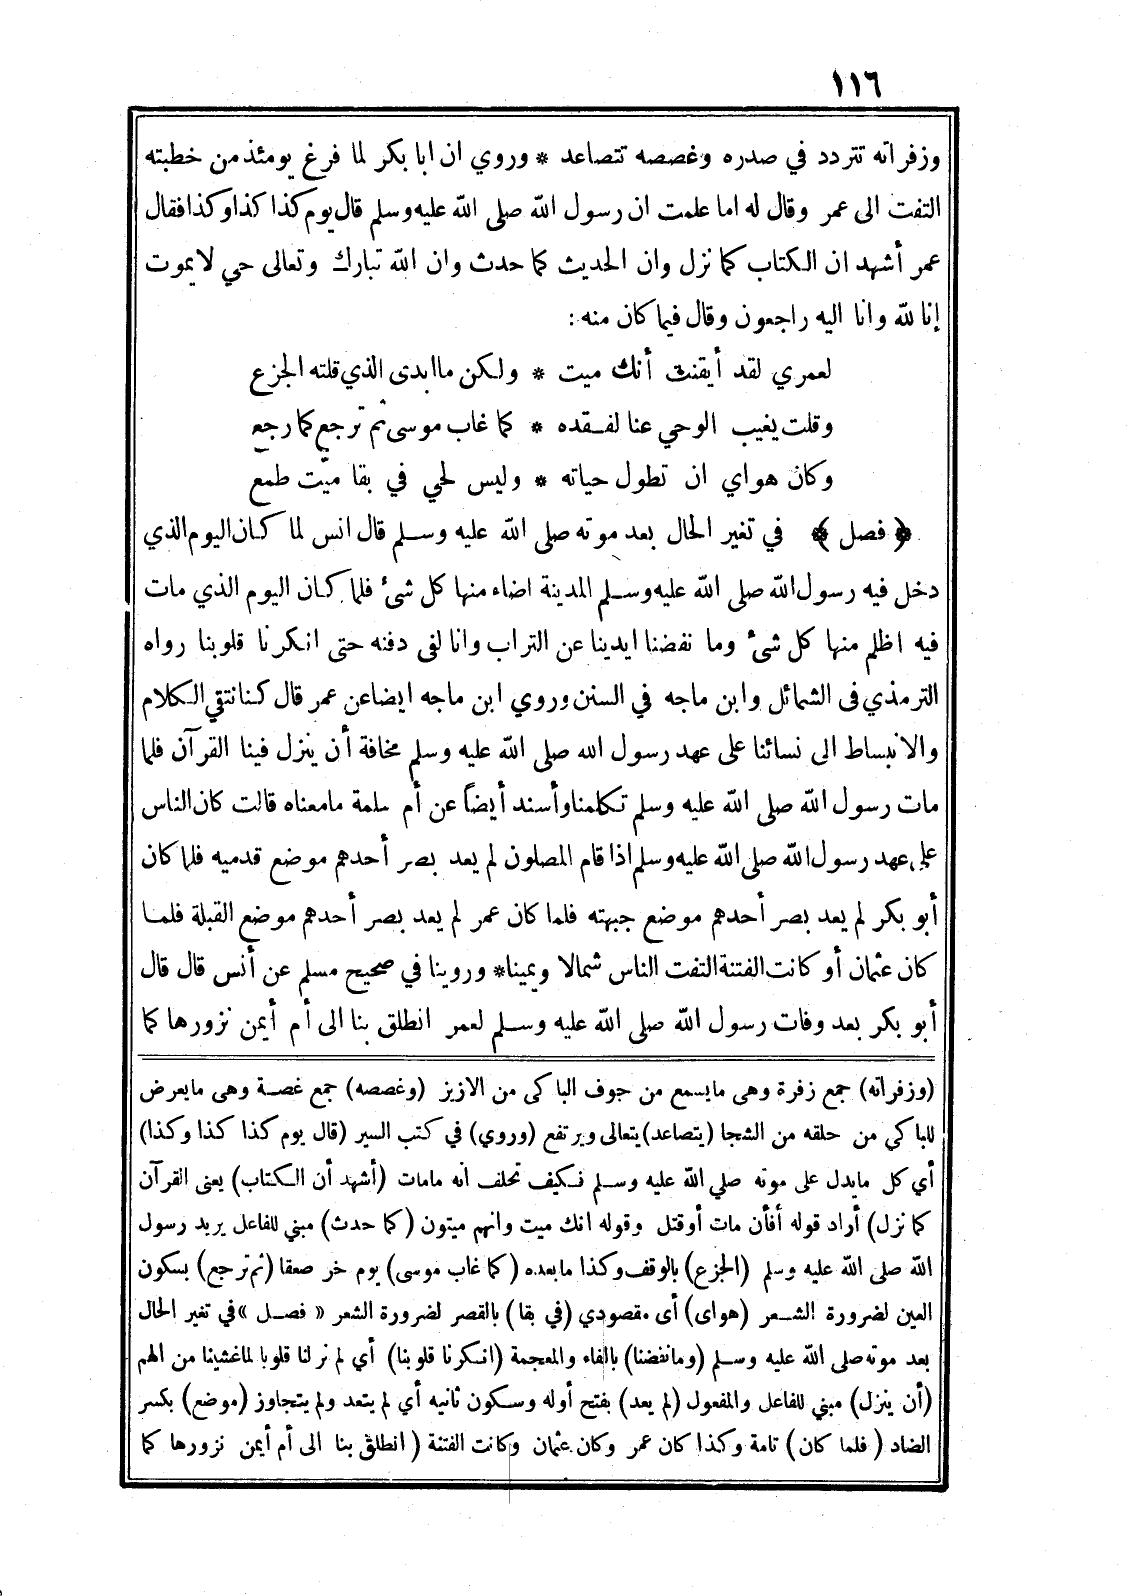 ١١٦
وزفراته تتردد في صدره وغصصه تتصاعد * وروي ان ابا بكر لما فرغ يومئذ من خطبته
التفت الى عمر وقال له اما علمت ان رسول الله صلى الله عليه وسلم قال يوم كذا كذا وكذا فقال
عمر أشهد ان الكتاب كما نزل وان الحديث كما حدث وان الله تبارك وتعالى حي لا يموت
إنا لله وانا اليه راجعون وقال فيما كان منه :
لعمري لقد أيقنت أنك ميت * ولكن ما ابدى الذي قلته الجزع
وقلت يغيب الوحي عنا لفقده * كما غاب موسى ثم ترجع كما رجع
وكان هواي ان تطول حياته * وليس لحي في بقا ميّت طمع
﴿ فصل ﴾ في تغير الحال بعد موته صلى الله عليه وسلم قال انس لما كان اليوم الذي
دخل فيه رسول الله صلى الله عليه وسلم المدينة اضاء منها كل شئ فلما كان اليوم الذي مات
فيه اظلم منها كل شئ وما نفضنا ايدينا عن التراب وانا لفى دفنه حتى انكرنا قلوبنا رواه
الترمذي فى الشمائل وابن ماجه في السنن وروي ابن ماجه ايضا عن عمر قال كنا نتقي الكلام
والانبساط الى نسائنا على عهد رسول الله صلى الله عليه وسلم مخافة أن ينزل فينا القرآن فلما
مات رسول الله صلى الله عليه وسلم تكلمنا وأسند أيضاً عن أم سلمة ما معناه قالت كان الناس
على عهد رسول الله صلى الله عليه وسلم اذا قام المصلون لم يعد بصر أحدهم موضع قدميه فلما كان
أبو بكر لم يعد بصر أحدهم موضع جبهته فلما كان عمر لم يعد بصر أحدهم موضع القبلة فلما
كان عثمان أو كانت الفتنة التفت الناس شمالا ويمينا * وروينا في صحيح مسلم عن أنس قال قال
أبو بكر بعد وفات رسول الله صلى الله عليه وسلم لعمر انطلق بنا الى أم أيمن نزورها كما
(وزفراته) جمع زفرة وهى ما يسمع من جوف الباكى من الازيز (وغصصه) جمع غصة وهى ما يعرض
للباكي من حلقه من الشجا (يتصاعد) يتعالى ويرتفع (وروي) في كتب السير (قال يوم كذا كذا وكذا)
أي كل ما يدل على موته صلي الله عليه وسلم فكيف تحلف انه مامات (أشهد أن الكتاب) يعنى القرآن
كما نزل) أراد قوله أفأن مات أو قتل وقوله انك ميت وانهم ميتون (كما حدث) مبني للفاعل يريد رسول
الله صلى الله عليه وسلم (الجزع) بالوقف وكذا ما بعده (كما غاب موسى) يوم خر صعقا (ثم ترجع) بسكون
العين لضرورة الشعر (هواى) أى مقصودي (في بقا) بالقصر لضرورة الشعر « فصل » في تغير الحال
بعد موته صلى الله عليه وسلم (وما نفضنا) بالفاء والمعجمة (انكرنا قلوبنا) أي لم نر لنا قلوبا لما غشينا من الهم
(أن ينزل) مبني للفاعل والمفعول (لم يعد) بفتح أوله وسكون ثانيه أي لم يتعد ولم يتجاوز (موضع) بكسر
الضاد ( فلما كان) تامة وكذا كان عمر وكان عثمان وكانت الفتنة ( انطلق بنا الى أم أيمن نزورها كما